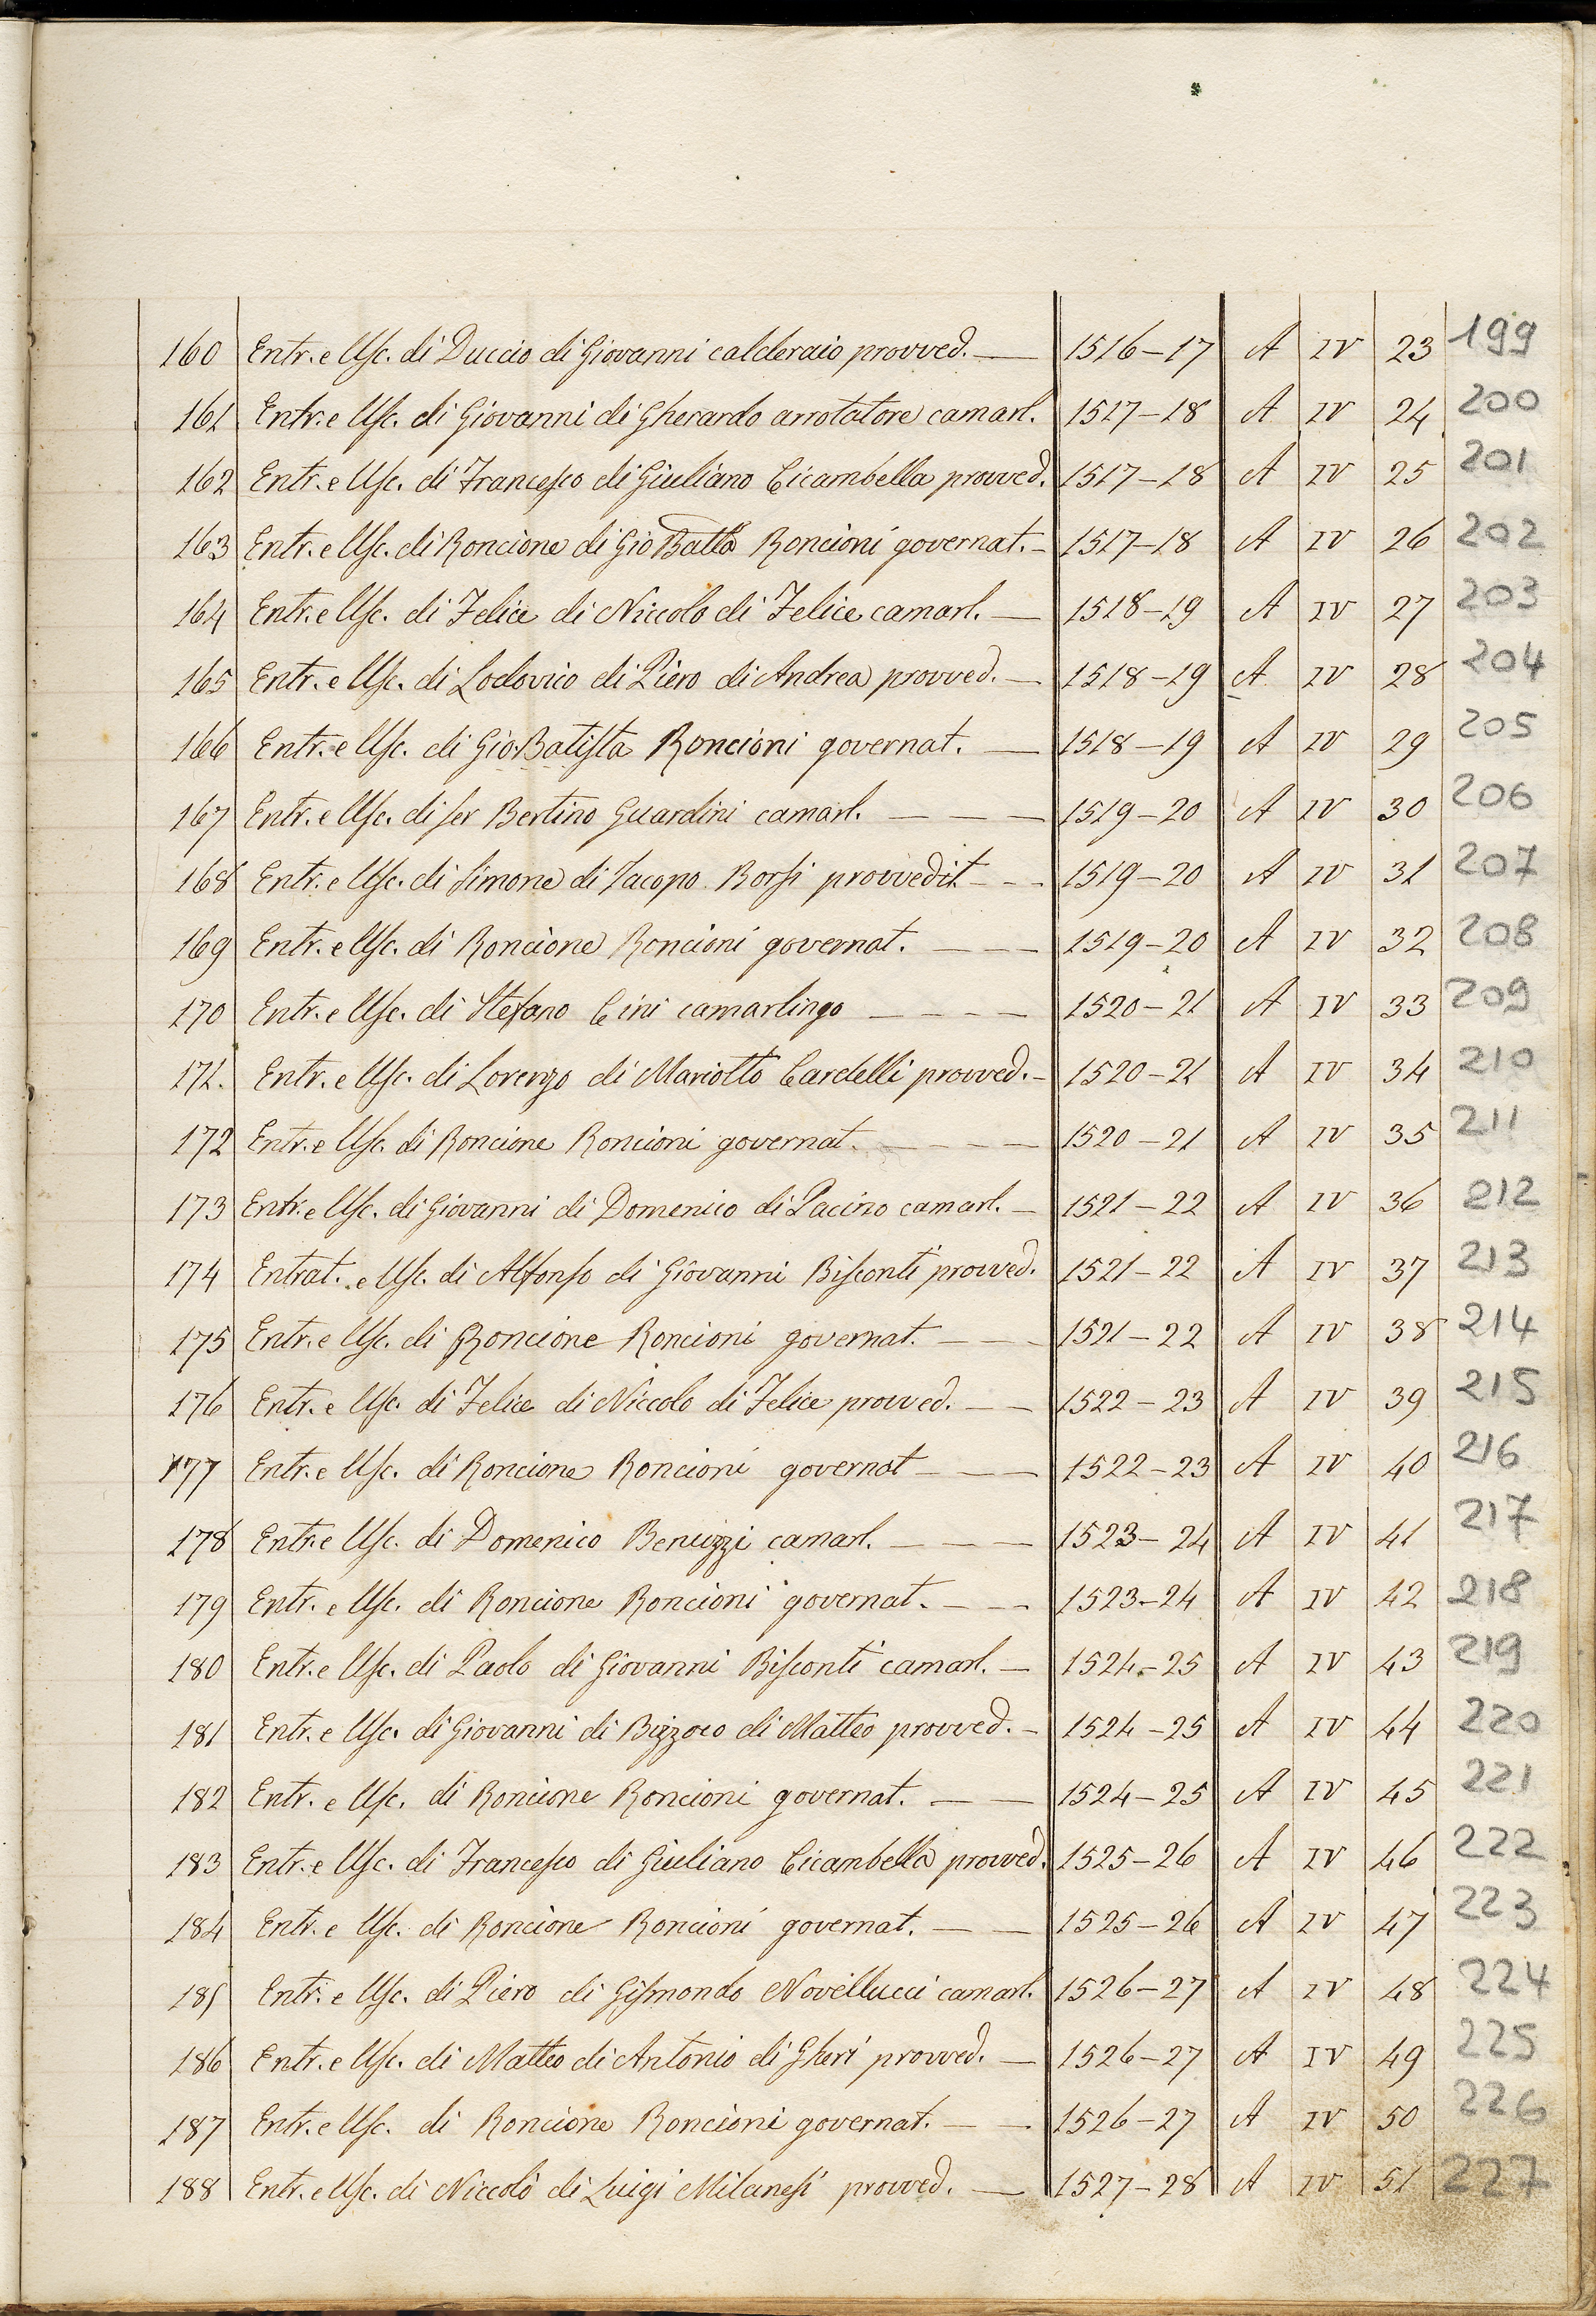 160 Entr. e Usc. di Duccio di Giovanni calderaio provved. — 1516-17 A IV 23 199
161 Entr. e Usc. di Giovanni di Gherardo arrotatore camarl. 1517-18 A IV 24 200
162 Entr. e Usc. di Francesco di Giuliano Cicambella provved. 1517-18 A IV 25 201
163 Entr. e Usc. di Roncione di Gio Batta Roncioni governat. - 1517-18 A IV 26 202
164 Entr. e Usc. di Felice di Niccolo di Felice camarl. — 1518-19 A IV 27 203
165 Entr. e Usc. di Lodovico di Piero di Andrea provved. — 1518-19 A IV 28 204
166 Entr. e Usc. di Gio. Batista Roncioni governat. — 1518-19 A IV 29 205
167 Entr. e Usc. di ser Bertino Guardini camarl. — — — 1519-20 A IV 30 206
168 Entr. e Usc. di Simone di Iacopo Borsi provvedit. - - - 1519-20 A IV 31 207
169 Entr. e Usc. di Roncione Roncioni governat. — — 1519-20 A IV 32 208
170 Entr. e Usc. di Stefano Cini camarlingo — — — — 1520-21 A IV 33 209
171. Entr. e Usc. di Lorenzo di Mariotto Cardelli provved. - 1520-21 A IV 34 210
172 Entr. e Usc. di Roncione Roncioni governat. — — — 1520-21 A IV 35 211
173 Entr. e Usc. di Giovanni di Domenico di Pacino camarl. — 1521-22 A IV 36 212
174 Entrat. e Usc. di Alfonso di Giovanni Bisconti provved. 1521-22 A IV 37 213
175 Entr. e Usc. di Roncione Roncioni governat. — — 1521-22 A IV 38 214
176 Entr. e Usc. di Felice di Niccolo di Felice provved. — — 1522-23 A IV 39 215
177 Entr. e Usc. di Roncione Roncioni governat — — — 1522-23 A IV 40 216
178 Entr. e Usc. di Domenico Benuzzi camarl. — — — 1523-24 A IV 41 217
179 Entr. e Usc. di Roncione Roncioni governat. — — 1523-24 A IV 42 218
180 Entr. e Usc. di Paolo di Giovanni Bisconti camarl. — 1524-25 A IV 43 219
181 Entr. e Usc. di Giovanni di Bizzoco di Matteo provved. - 1524-25 A IV 44 220
182 Entr. e Usc. di Roncione Roncioni governat. — — 1524-25 A IV 45 221
183 Entr. e Usc. di Francesco di Giuliano Cicambella provved. 1525-26 A IV 46 222
184 Entr. e Usc. di Roncione Roncioni governat. — — 1525-26 A IV 47 223
185 Entr. e Usc. di Piero di Gismondo Novellucci camarl. 1526-27 A IV 48 224
186 Entr. e Usc. di Matteo di Antonio di Gheri provved. — 1526-27 A IV 49 225
187 Entr. e Usc. di Roncione Roncioni governat. — — 1526-27 A IV 50 226
188 Entr. e Usc. di Niccolò di Luigi Milanesi provved. — 1527-28 A IV 51 227